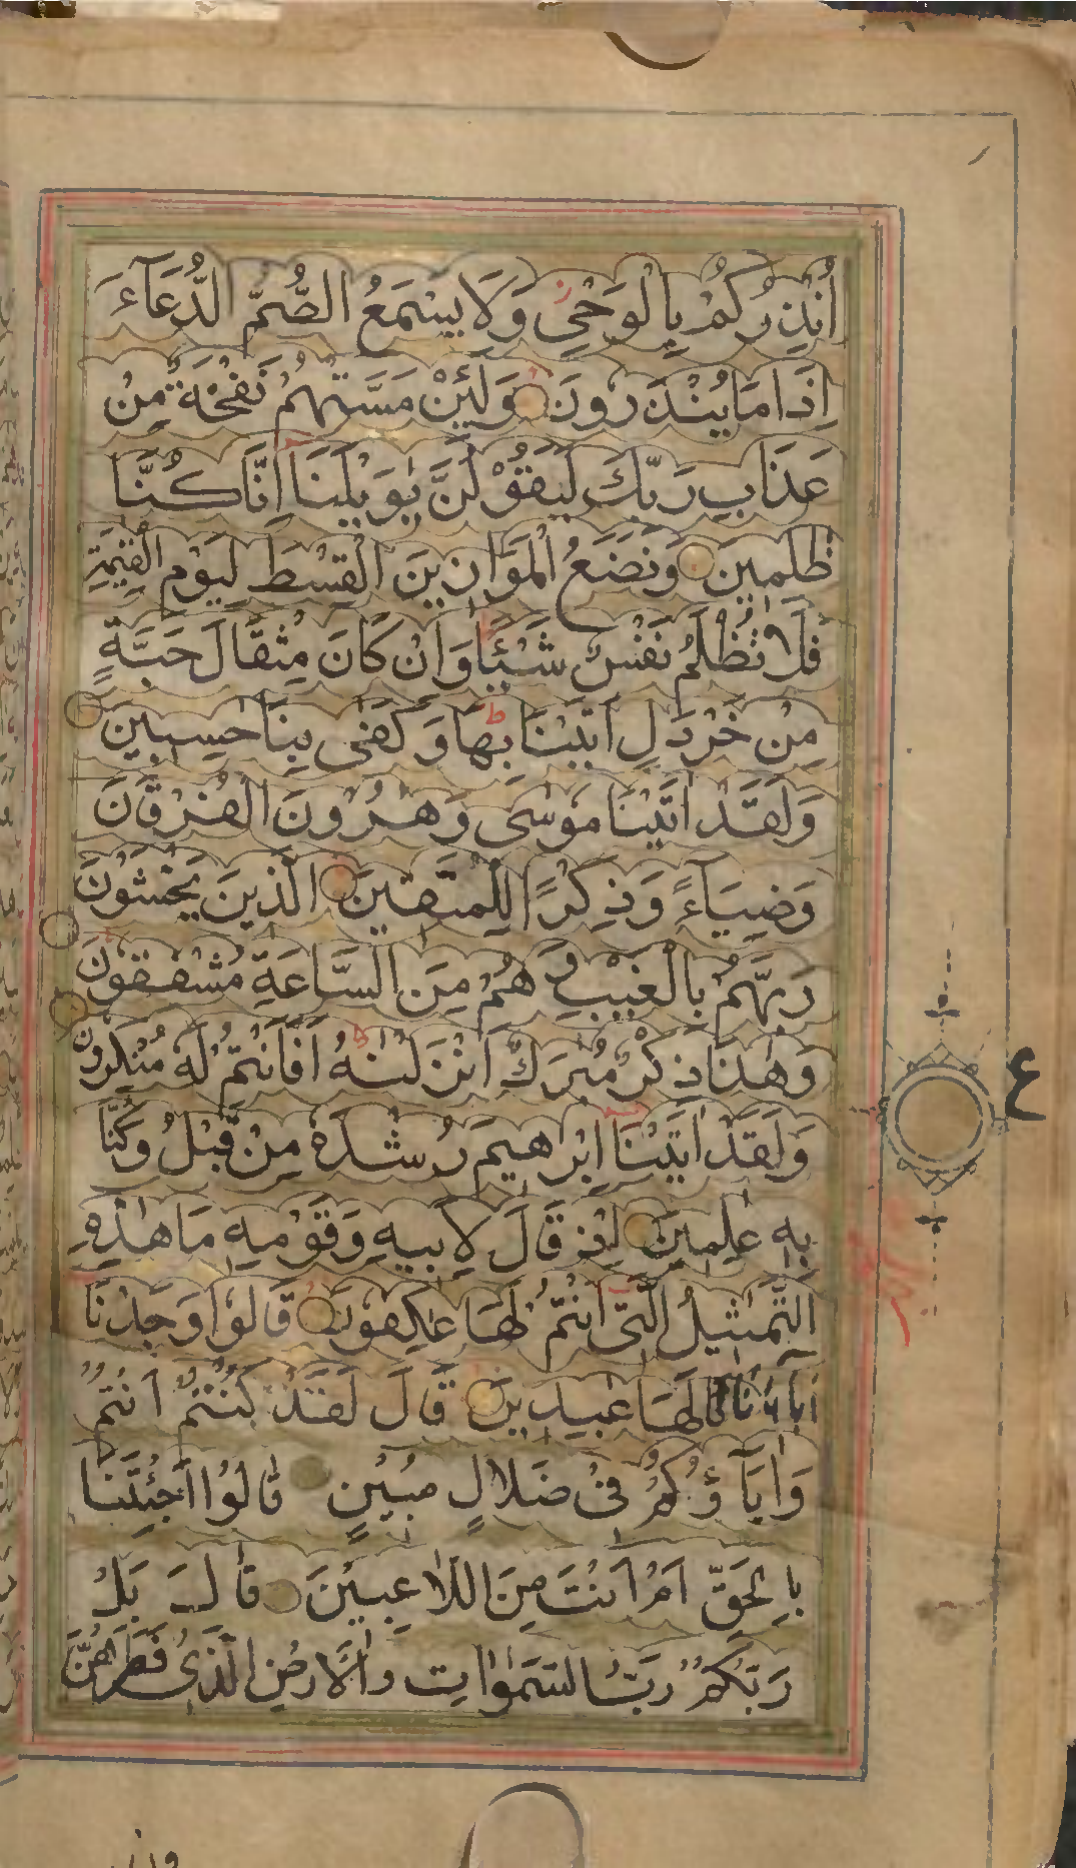 اُنْذِرُكُمْ بِالْوَحْيِ وَلَا يَسْمَعُ الصُّمُّ الدُّعَآءَ
اِذَا مَا يُنْذَرُونَ وَلَئِنْ مَسَّتْهُمْ نَفْحَةٌ مِنْ
عَذَابِ رَبِّكَ لَيَقُوْلُنَّ يٰوَيْلَنَا اِنَّا كُنَّا
ظٰلِمِينَ وَنَضَعُ الْمَوَازِينَ الْقِسْطَ لِيَوْمِ الْقِيٰمَةِ
فَلَا تُظْلَمُ نَفْسٌ شَيْئًا وَاِنْ كَانَ مِثْقَالَ حَبَّةٍ
مِنْ خَرْدَلٍ اَتَيْنَا بِهَا وَكَفٰى بِنَا حٰسِبِينَ
وَلَقَدْ اٰتَيْنَا مُوْسٰى وَهٰرُوْنَ الْفُرْقَانَ
وَضِيَآءً وَذِكْرًا لِلْمُتَّقِينَ الَّذِينَ يَخْشَوْنَ
رَبَّهُمْ بِالْغَيْبِ وَهُمْ مِنَ السَّاعَةِ مُشْفِقُوْنَ
وَهٰذَا ذِكْرٌ مُبٰرَكٌ اَنْزَلْنٰهُ اَفَاَنْتُمْ لَهٗ مُنْكِرُوْنَ
وَلَقَدْ اٰتَيْنَا اِبْرٰهِيمَ رُشْدَهٗ مِنْ قَبْلُ وَكُنَّا
بِهٖ عٰلِمِينَ اِذْ قَالَ لِاَبِيهِ وَقَوْمِهٖ مَا هٰذِهِ
التَّمٰثِيلُ الَّتِى اَنْتُمْ لَهَا عٰكِفُوْنَ قَالُوْا وَجَدْنَا
اٰبَآءَنَا لَهَا عٰبِدِينَ قَالَ لَقَدْ كُنْتُمْ اَنْتُمْ
وَاٰبَآؤُكُمْ فِىْ ضَلَالٍ مُبِيْنٍ قَالُوْا اَجِئْتَنَا
بِالْحَقِّ اَمْ اَنْتَ مِنَ اللَّاعِبِيْنَ قَالَ بَلْ
رَبُّكُمْ رَبُّ السَّمٰوَاتِ وَالْاَرْضِ الَّذِىْ فَطَرَهُنَّ
ع